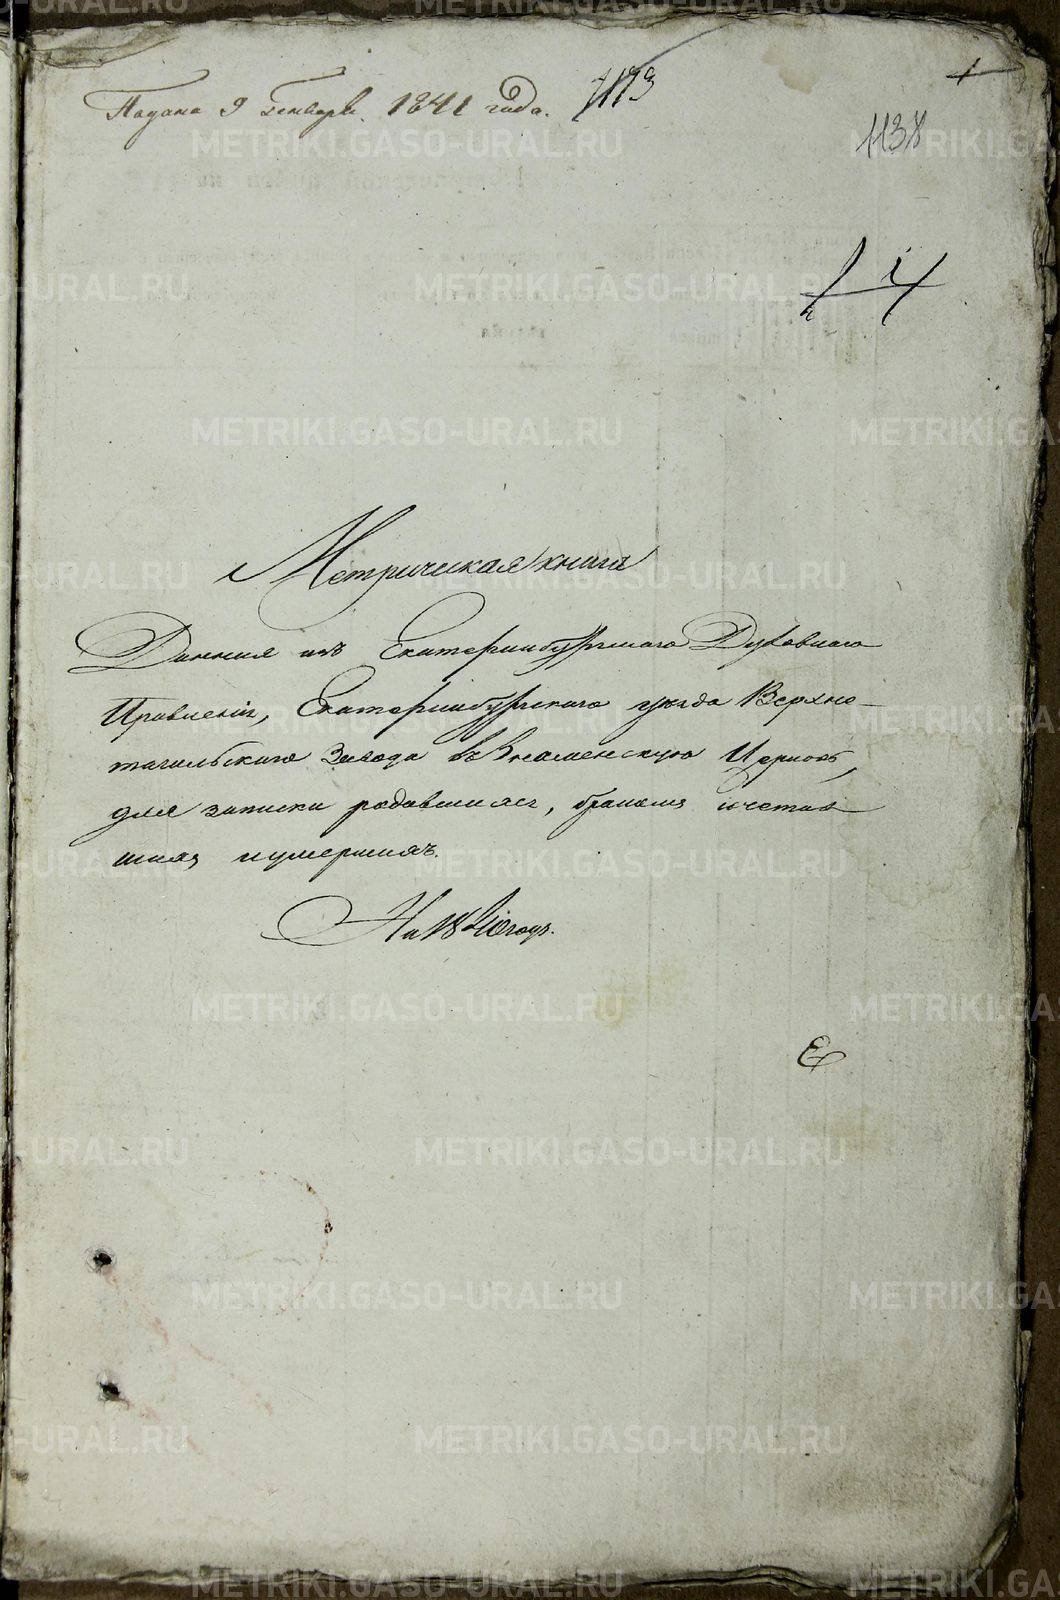 Подана 9 генваря 1841 года.
1138
1
Метрическая книга
Данная изъ Екатеринбургскаго Духовнаго
Правленія, Екатеринбургскаго уезда Верхно-
тагильскаго завода въ Знаменскую Церковь,
для записки родившихся, бракомъ сочетав
шихся и умершихъ.
На 1840 годъ.
METRIKI.GASO-URAL.RU